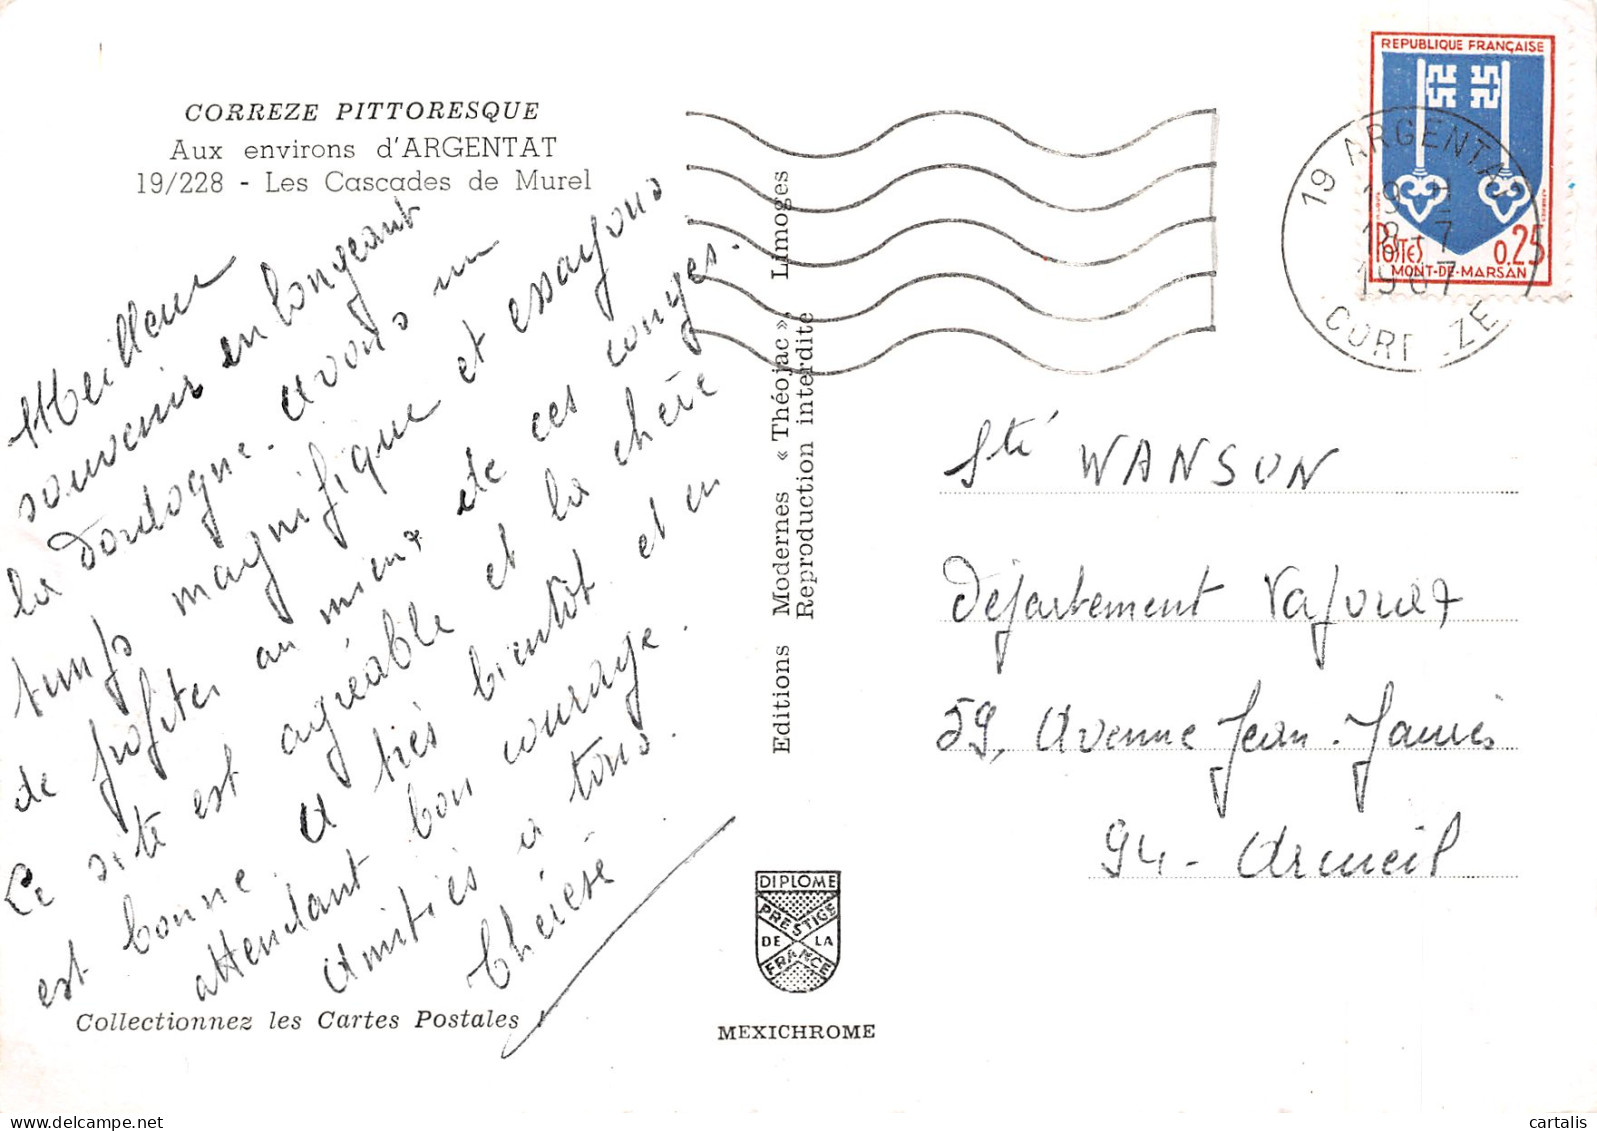 CORREZE PITTORESQUE
Aux environs d'ARGENTAT
19/228 - Les Cascades de Murel
Meilleur
souvenir en longeant
la Dordogne. Avons un
temps magnifique et essayons
de profiter au mieux de ces congés.
Le site est agréable et la chère
est bonne. A très bientôt et en
attendant bon courage.
Amitiés à tous.
Thérèse
Collectionnez les Cartes Postales !
Editions Modernes « Théojac », Limoges
Reproduction interdite
DIPLOME
PRESTIGE
DE LA
FRANCE
MEXICHROME
REPUBLIQUE FRANÇAISE
POSTES 0.25
MONT-DE-MARSAN
19 ARGENTA
19 H
18 - 7
1967
CORR ZE
Sté WANSON
Département
59, Avenue Jean-Jaurès
94 - Arcueil
cartalis